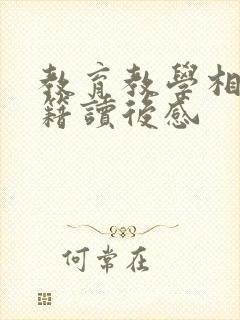 教育教學相
籍讀後感
何常在